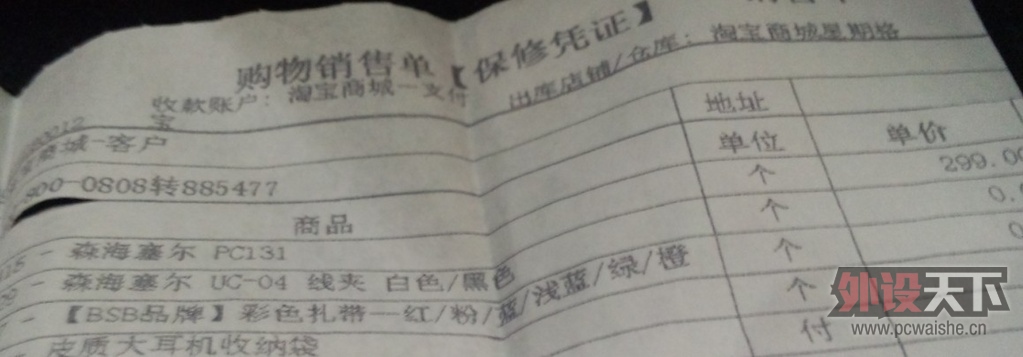 购物销售单【保修凭证】
收款账户: 淘宝商城-支付宝 出库店铺/仓库: 淘宝商城星期格
商城-客户 地址
00-0808转885477 单位 单价
商品 个 299.00
- 森海塞尔 PC131 个 0.
- 森海塞尔 UC-04 线夹 白色/黑色 个
- 【BSB品牌】彩色扎带--红/粉/蓝/浅蓝/绿/橙 个
皮质大耳机收纳袋 付
外设天下
www.pcwaishe.cn